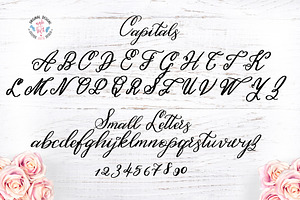 Capitals
ABCDEFGHIJK
LMNOPQRSTUVWYZ
Small Letters
abcdefghijklmnopqrstuvwyz
1234567890